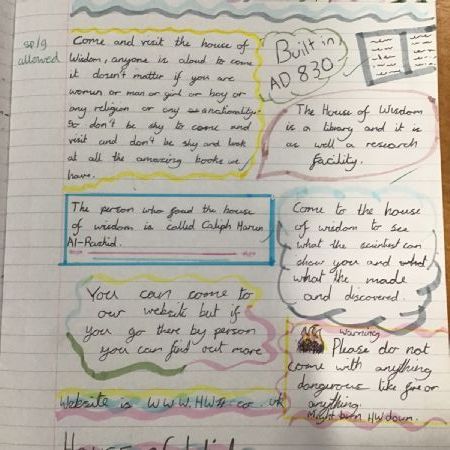 sp/g
allowed
Come and visit the house of
Wisdom, anyone is aloud to come
it doesn't matter if you are
women or man or girl or boy or
any religion or any nationality.
So don't be shy to come and
visit and don't be shy and look
at all the amazing books we
have.
Built in
AD 830
The House of Wisdom
is a library and it is
as well a research
facility.
The person who foud the house
of wisdom is called Caliph Harun
Al-Rashid.
Come to the house
of wisdom to see
what the scientest can
show you and what
what the made
and discovered.
You can come to
our website but if
you go there by person
you can find out more
Warning
Please do not
come with anything
dangerous like fire or
anything.
Might burn HW down.
Website is WWW.HW.co.uk